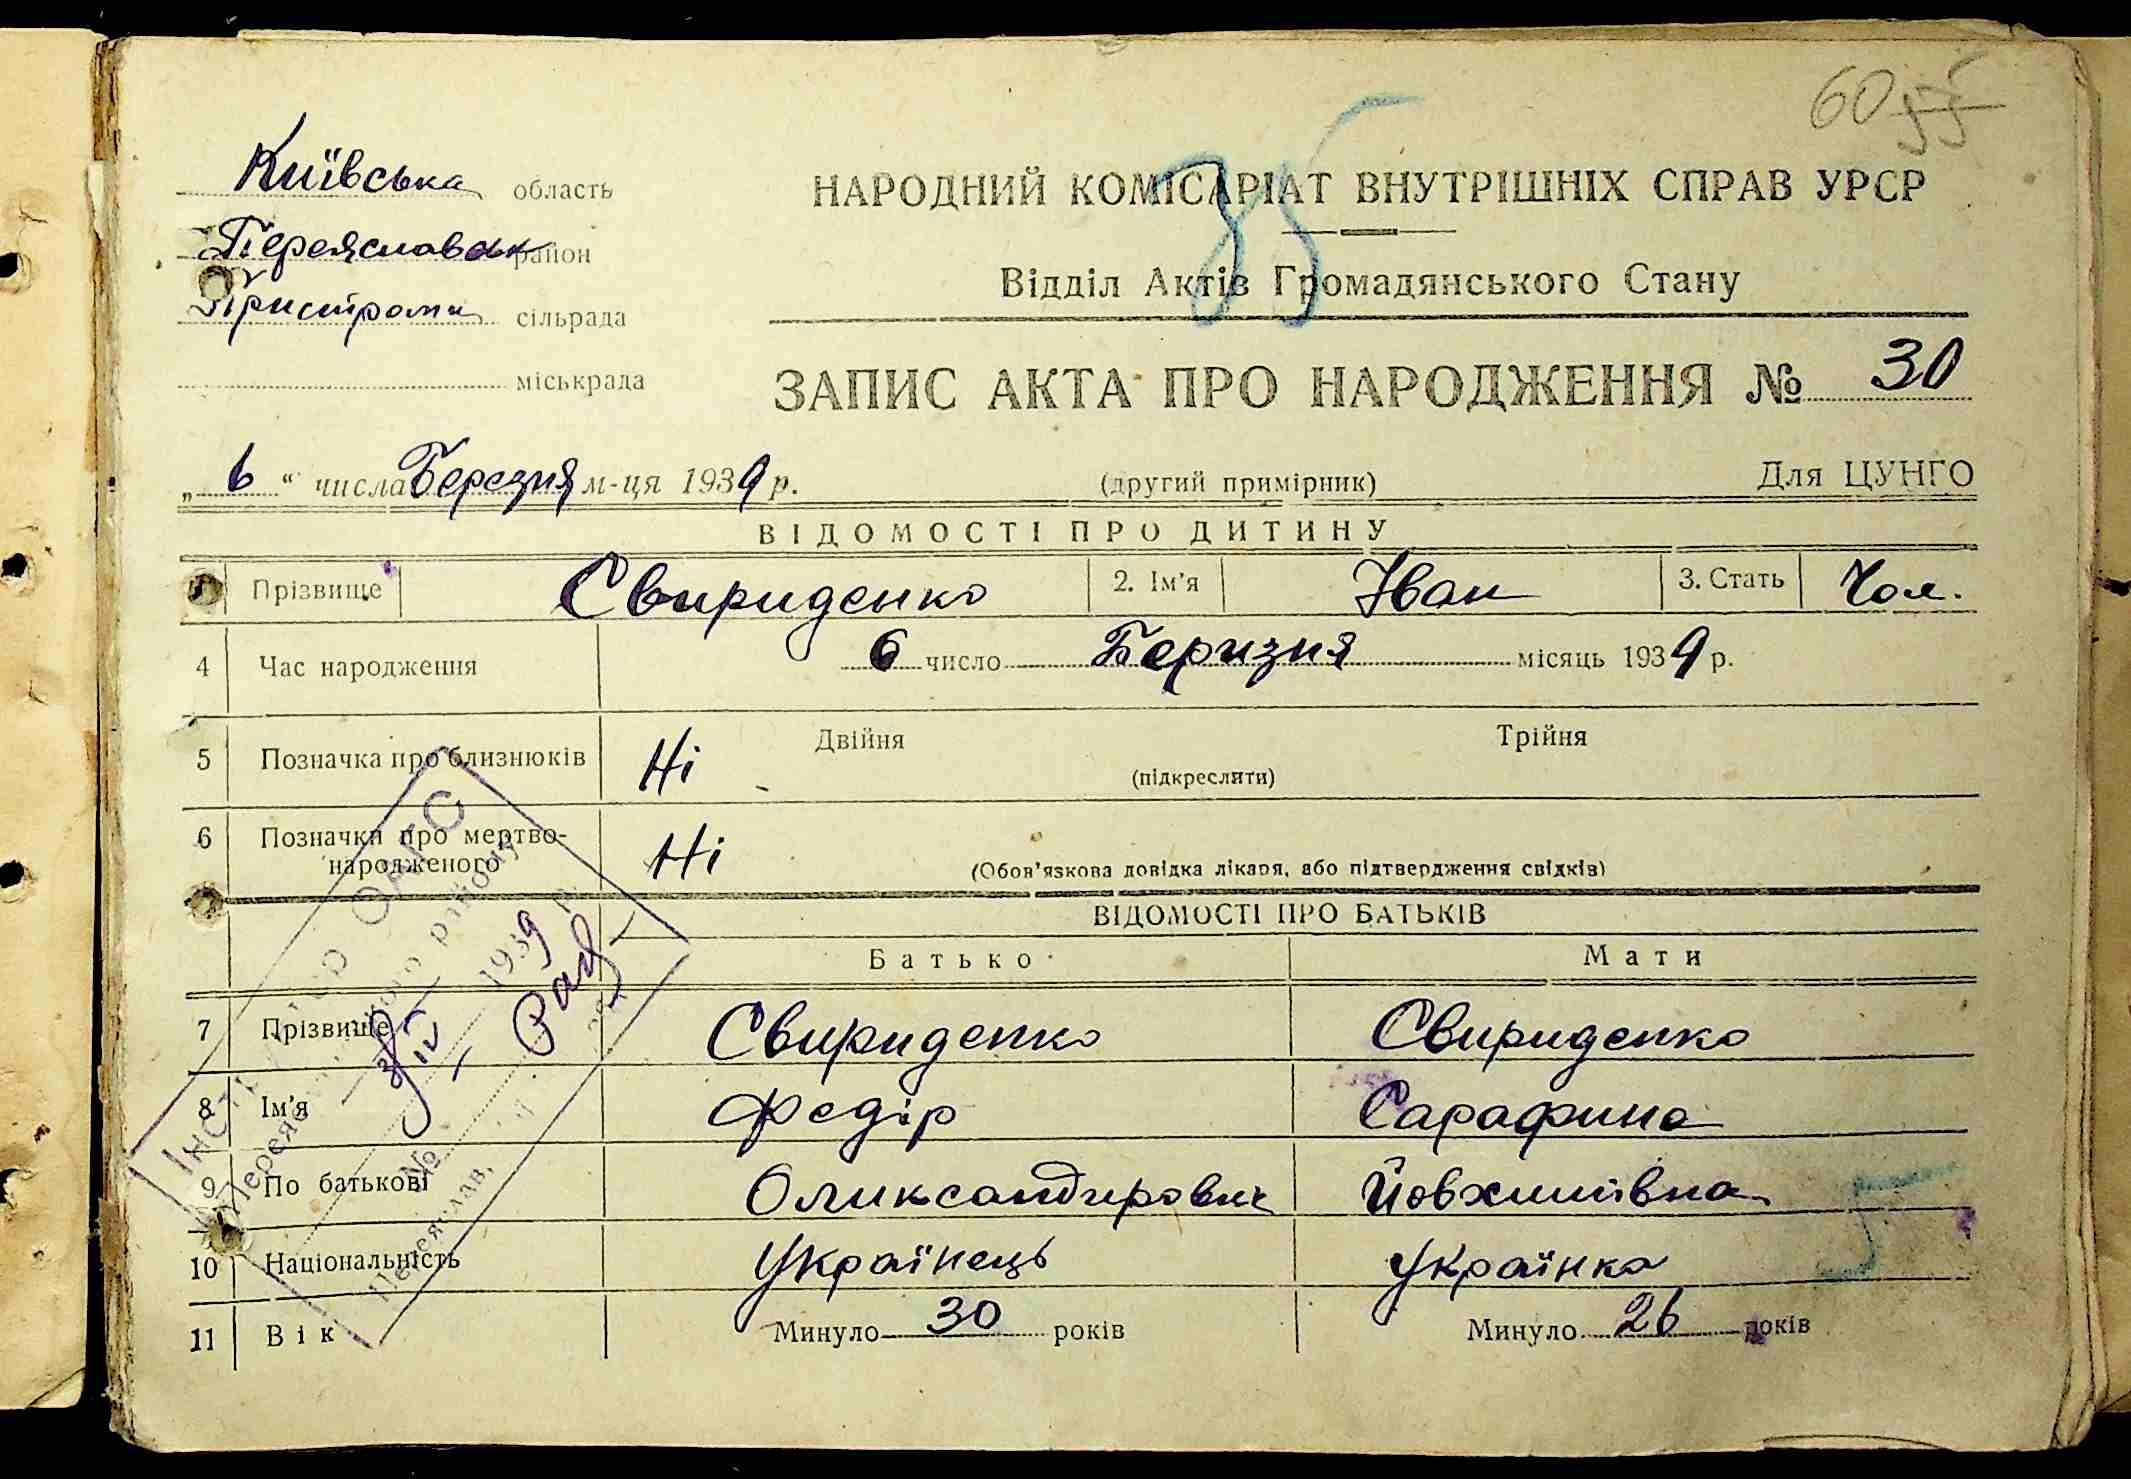 60 55
85
Київська область
Переяславськ район
Пристроми сільрада
міськрада
НАРОДНИЙ КОМІСАРІАТ ВНУТРІШНІХ СПРАВ УРСР
Відділ Актів Громадянського Стану
ЗАПИС АКТА ПРО НАРОДЖЕННЯ № 30
„ 6 “ числа Березня м-ця 1939 р. (другий примірник) Для ЦУНГО
ВІДОМОСТІ ПРО ДИТИНУ
Прізвище Свириденко 2. Ім'я Іван 3. Стать Чол.
4 Час народження 6 число Беризня місяць 1939 р.
5 Позначка про близнюків Ні Двійня Трійня
(підкреслити)
6 Позначка про мертво-
народженого Ні (Обов'язкова довідка лікаря, або підтвердження свідків)
ВІДОМОСТІ ПРО БАТЬКІВ
Батько Мати
7 Прізвище Свириденко Свириденко
8 Ім'я Федір Сарафина
9 По батькові Оликсандирович
10 Національність Українець Українка
11 Вік Минуло 30 років Минуло 26 років
1939
№